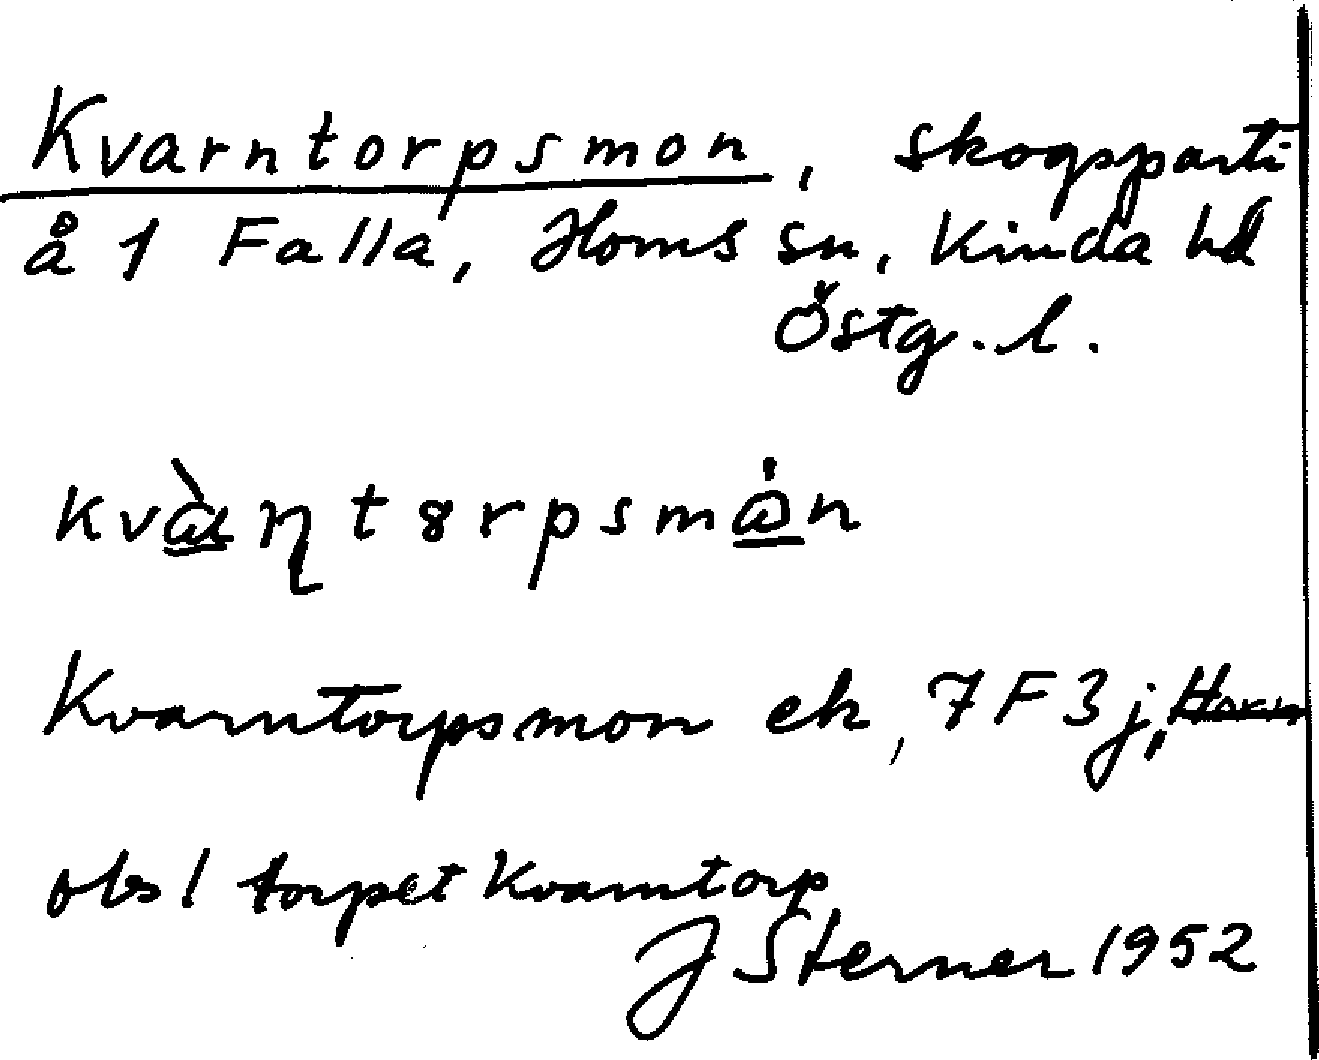 Kvarntorpsmon, skogsparti
å 1 Falla, Horns sn, Kinda hd
Östg. l.
Kvarntorpsmon ek, 7F3j,
obs! torpet Kvarntorp
J Sterner 1952